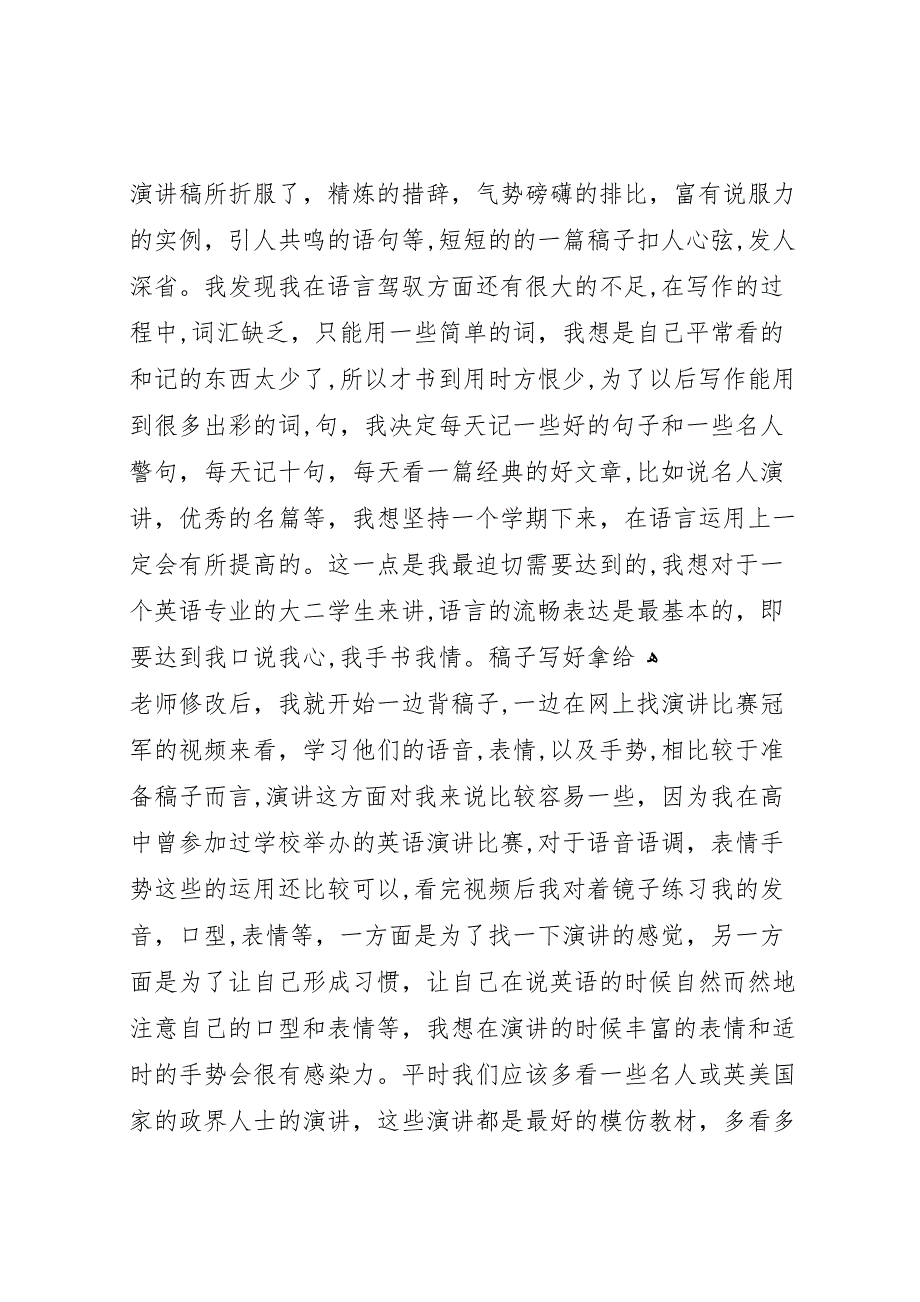 演讲稿所折服了，精炼的措辞，气势磅礴的排比，富有说服力
的实例，引人共鸣的语句等,短短的的一篇稿子扣人心弦,发人
深省。我发现我在语言驾驭方面还有很大的不足,在写作的过
程中,词汇缺乏，只能用一些简单的词，我想是自己平常看的
和记的东西太少了,所以才书到用时方恨少,为了以后写作能用
到很多出彩的词,句，我决定每天记一些好的句子和一些名人
警句，每天记十句，每天看一篇经典的好文章,比如说名人演
讲，优秀的名篇等，我想坚持一个学期下来，在语言运用上一
定会有所提高的。这一点是我最迫切需要达到的,我想对于一
个英语专业的大二学生来讲,语言的流畅表达是最基本的，即
要达到我口说我心,我手书我情。稿子写好拿给 ﻬ
老师修改后，我就开始一边背稿子,一边在网上找演讲比赛冠
军的视频来看，学习他们的语音,表情,以及手势,相比较于准
备稿子而言,演讲这方面对我来说比较容易一些，因为我在高
中曾参加过学校举办的英语演讲比赛,对于语音语调，表情手
势这些的运用还比较可以,看完视频后我对着镜子练习我的发
音，口型,表情等，一方面是为了找一下演讲的感觉，另一方
面是为了让自己形成习惯，让自己在说英语的时候自然而然地
注意自己的口型和表情等，我想在演讲的时候丰富的表情和适
时的手势会很有感染力。平时我们应该多看一些名人或英美国
家的政界人士的演讲，这些演讲都是最好的模仿教材，多看多